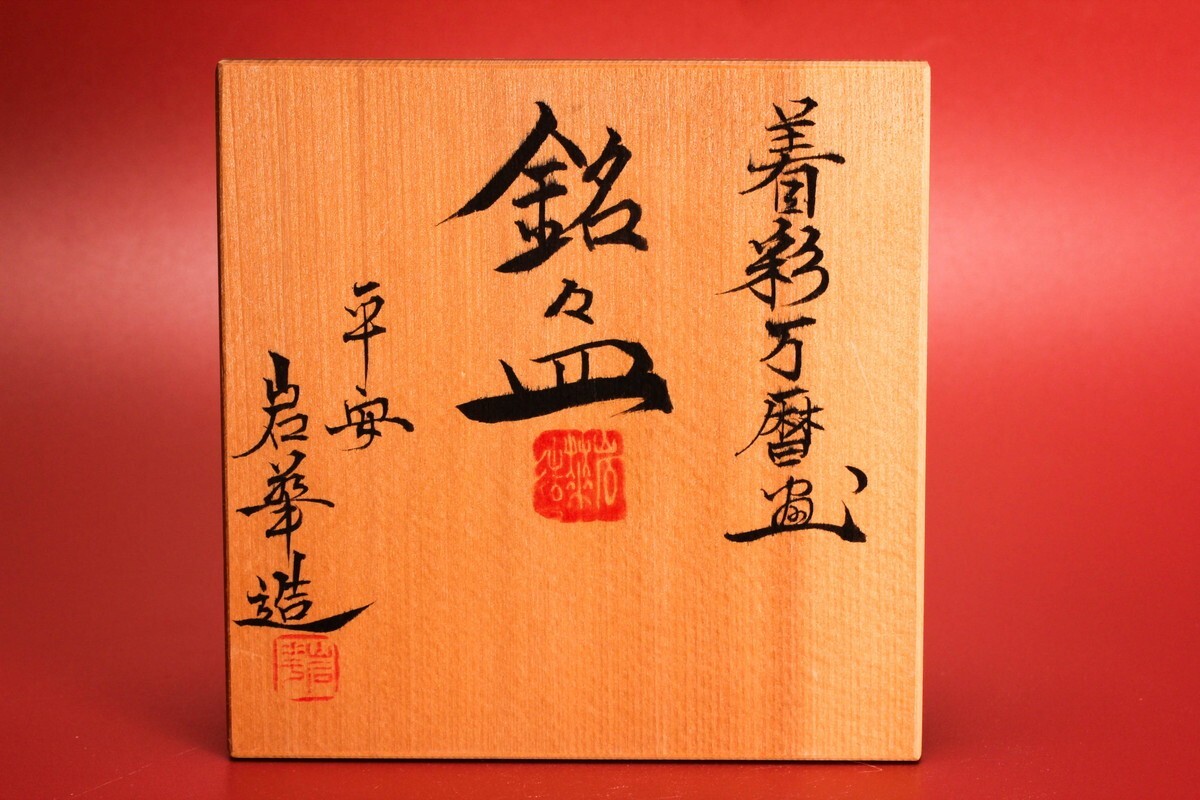 着彩万暦画
銘々皿
平安
岩華造